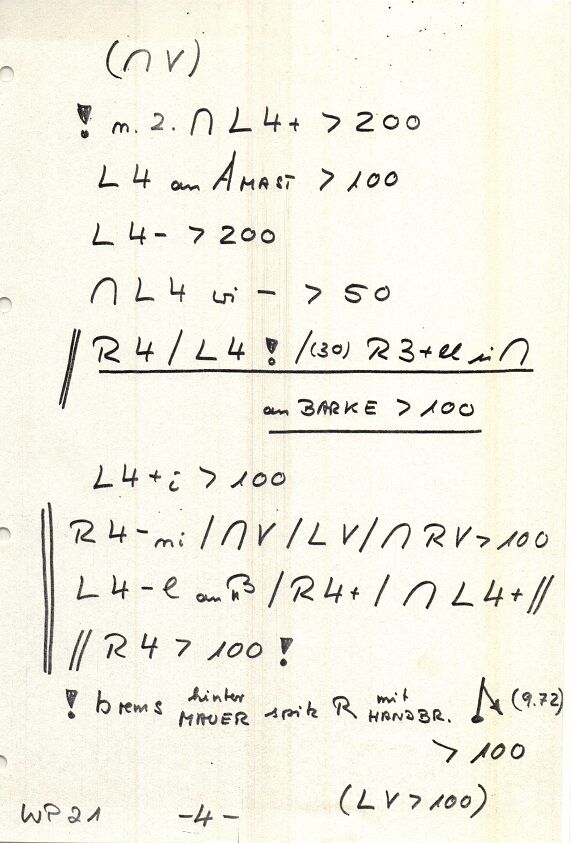 (∩ V)
! n. 2. ∩ L 4+ > 200
L 4 an A MAST > 100
L 4 - > 200
∩ L 4 wi - > 50
// R 4 / L 4 ! / (30) R 3 + ll in ∩
an BARKE > 100
L 4 + i > 100
R 4 - ni / ∩ V / L V / ∩ R V > 100
L 4 - l an / R 4 + / ∩ L 4 + //
// R 4 > 100 !
! brems hinter MAUER spitz R mit HANDBR. (9.72)
> 100
(L V > 100)
WP 21 - 4 -